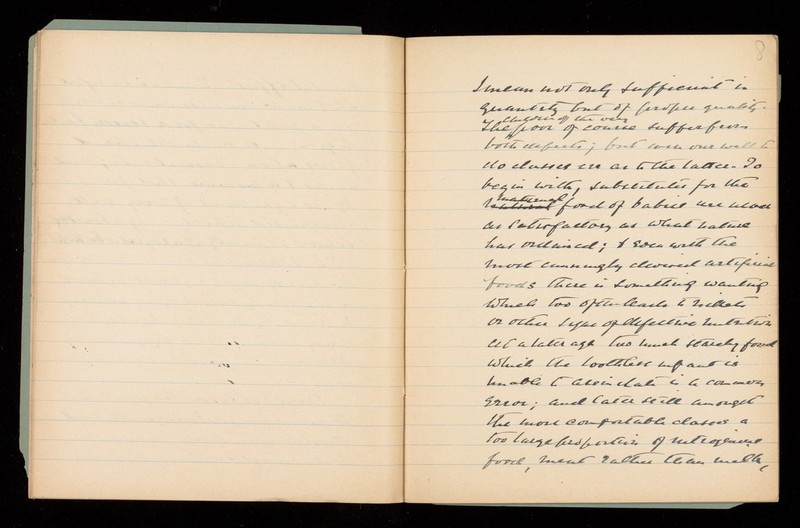 8
I mean not only sufficient in
quantity but of proper quality.
children of the very
The poor of course suffer from
both defects; but even our well to
do classes err as to the latter. To
begin with, substitutes for the
maternal
food of babies are never
as satisfactory as what nature
has ordained; & even with the
most cunningly devised artificial
foods there is something wanting
which too often leads to rickets
or other signs of defective nutrition
At a later age too much starchy food
which the toothless infant is
unable to assimilate is a common
error; and later still amongst
the more comfortable classes a
too large proportion of nitrogenous
food, meat rather than milk,